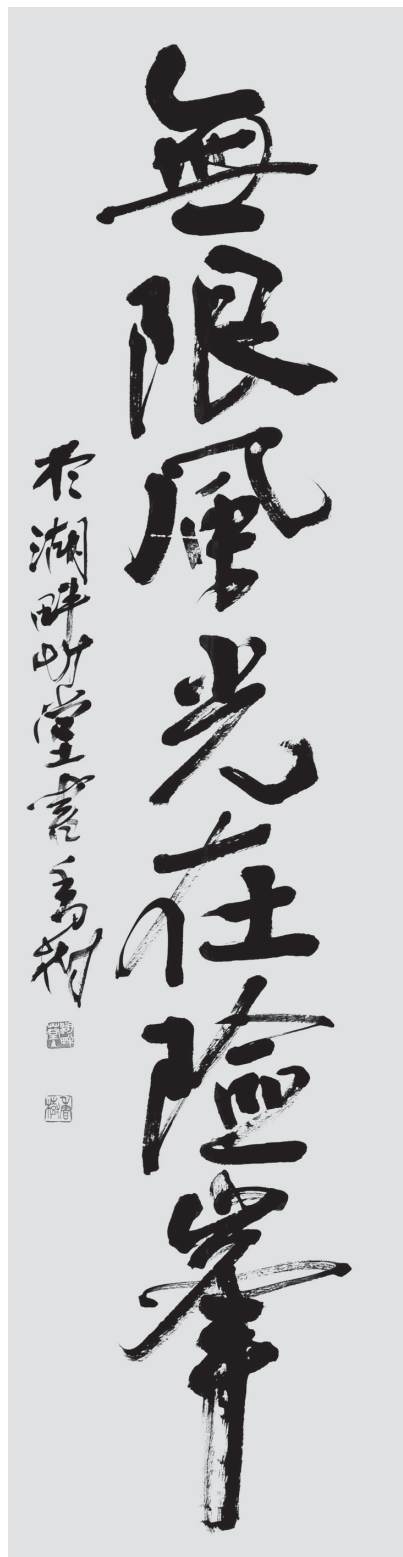 無限風光在險峯
於湖畔山堂書香樹